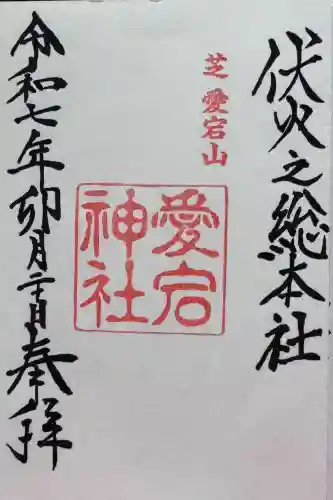 伏火之総本社
芝 愛宕山
愛宕
神社
令和七年卯月二十日奉拝